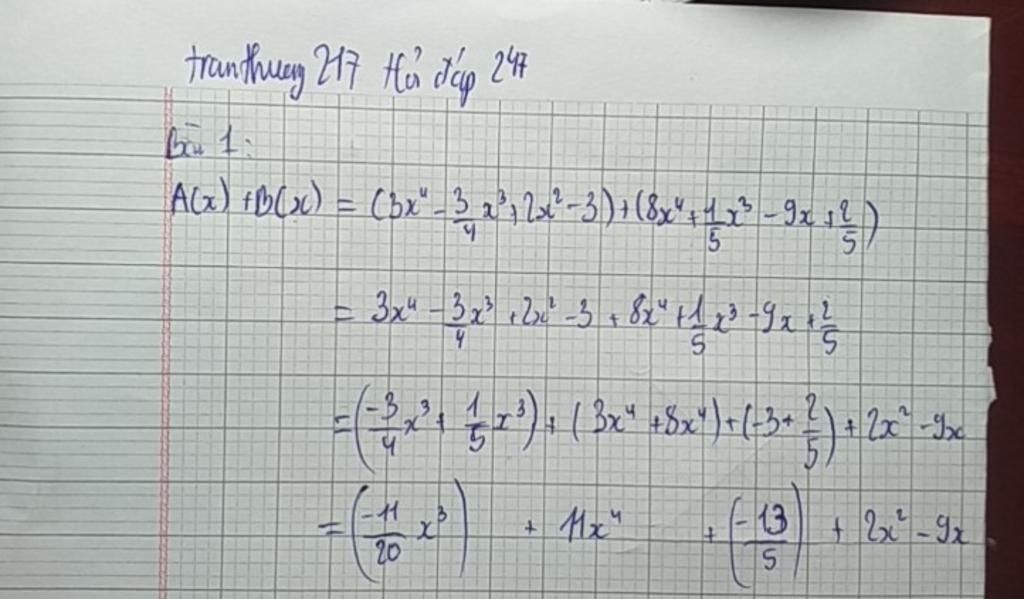 tranthuong 217 Hỏi đáp 247
Bài 1:
A(x) + B(x) = (3x⁴ - 3/4 x³ + 2x² - 3) + (8x⁴ + 1/5 x³ - 9x + 2/5)
= 3x⁴ - 3/4 x³ + 2x² - 3 + 8x⁴ + 1/5 x³ - 9x + 2/5
= (-3/4 x³ + 1/5 x³) + (3x⁴ + 8x⁴) + (-3 + 2/5) + 2x² - 9x
= (-11/20 x³) + 11x⁴ + (-13/5) + 2x² - 9x